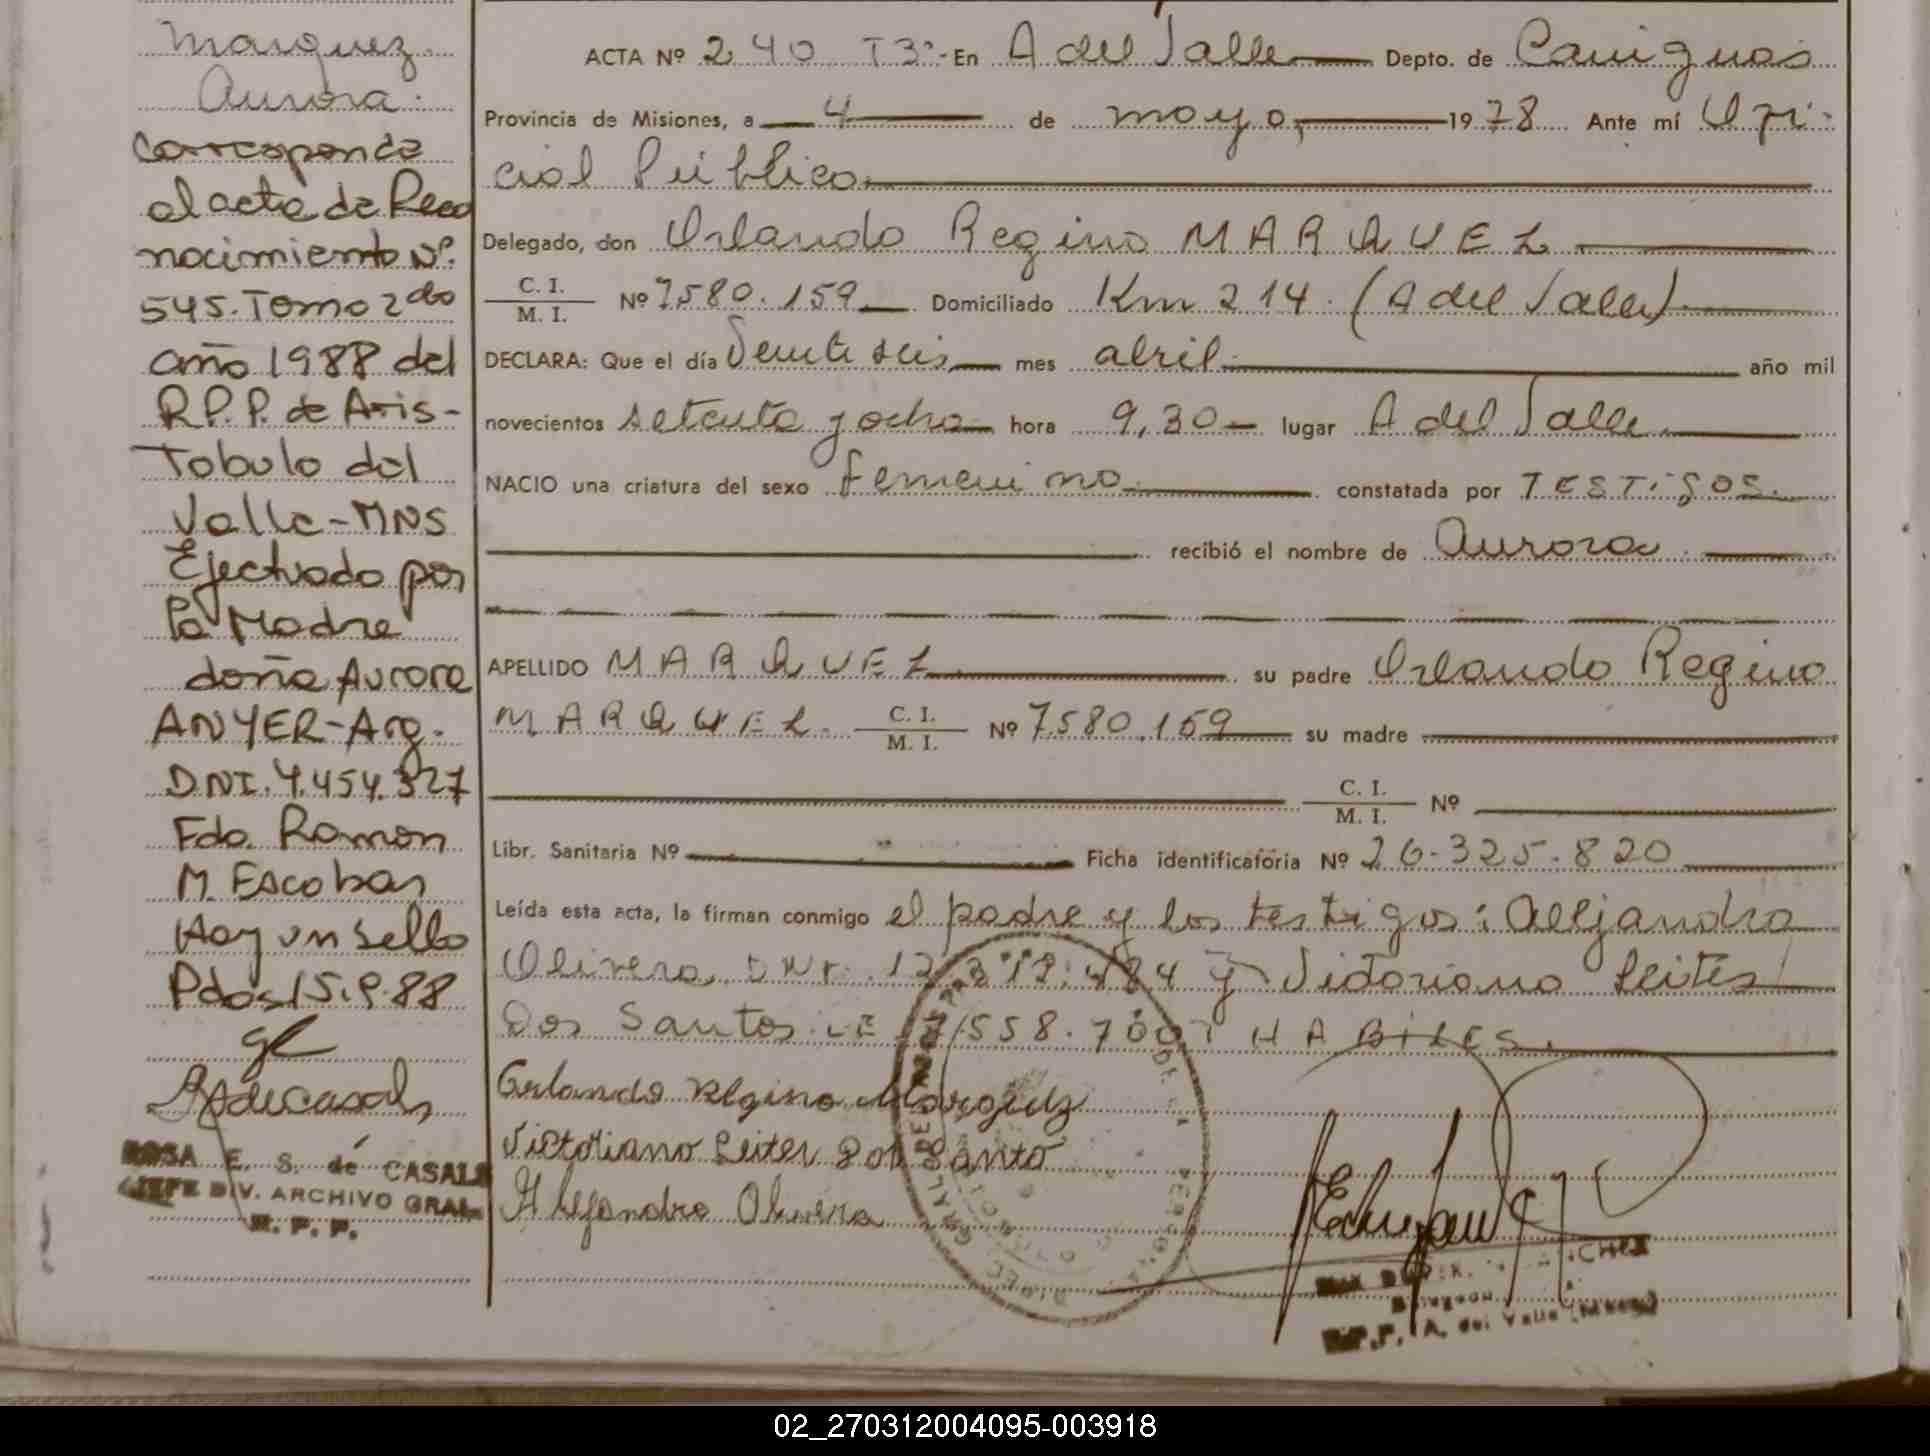 Marquez
Aurora.
Corresponde
al acta de Reco
nocimiento Nº.
545. Tomo 2do
año 1988 del
R.P.P. de Aris-
Tobulo del
Valle-MNS
Efectuado por
la Madre
doña Aurora
ANYER-Arg.
DNI. 4.454.327
Fdo. Ramon
M. Escobar
Hay un sello
Pdas 15.9.88
ROSA E. S. de CASALS
JEFE DIV. ARCHIVO GRAL.
R. P. P.
ACTA Nº 240 T3º- En A del Valle Depto. de Cainguas
Provincia de Misiones, a 4 de mayo, 1978 Ante mí Ofi-
cial Público
Delegado, don Orlando Regino MARQUEZ
C. I. / M. I. Nº 7580.159 Domiciliado Km 214. (A del Valle)
DECLARA: Que el día Veinte seis, mes abril año mil
novecientos setenta y ocho hora 9,30 lugar A del Valle
NACIO una criatura del sexo femenino constatada por TESTIGOS.
recibió el nombre de Aurora.
APELLIDO MARQUEZ su padre Orlando Regino
MARQUEZ. C. I. / M. I. Nº 7580.159 su madre
C. I. / M. I. Nº
Libr. Sanitaria Nº Ficha identificatoria Nº 26.325.820
Leída esta acta, la firman conmigo el padre y los testigos: Alejandro
Olivera. DNI. y Victoriano Leites
Dos Santos LE HABILES.
Orlando Regino Marquez
Victoriano Leites Dos Santo
Alejandro Olivera
R.P.P. A. del Valle (Mnes)
02_270312004095-003918